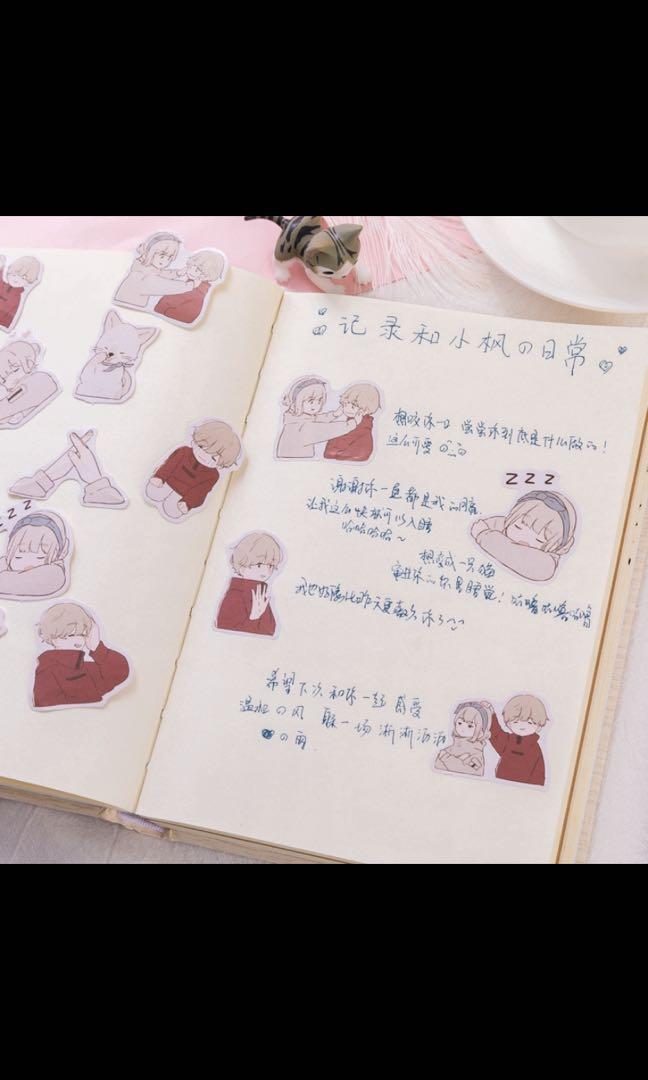 记录和小枫の日常
想咬你一口 尝尝你到底是什么做的！
这么可爱
ZZZ
谢谢你一直都是我的
让我这么快就可以入睡
哈哈哈哈~
想变成一只猫
ZZ
我也好像比昨天更喜欢你了~
希望下次和你一起 感受
温柔の风 躲一场 淅淅沥沥
の雨